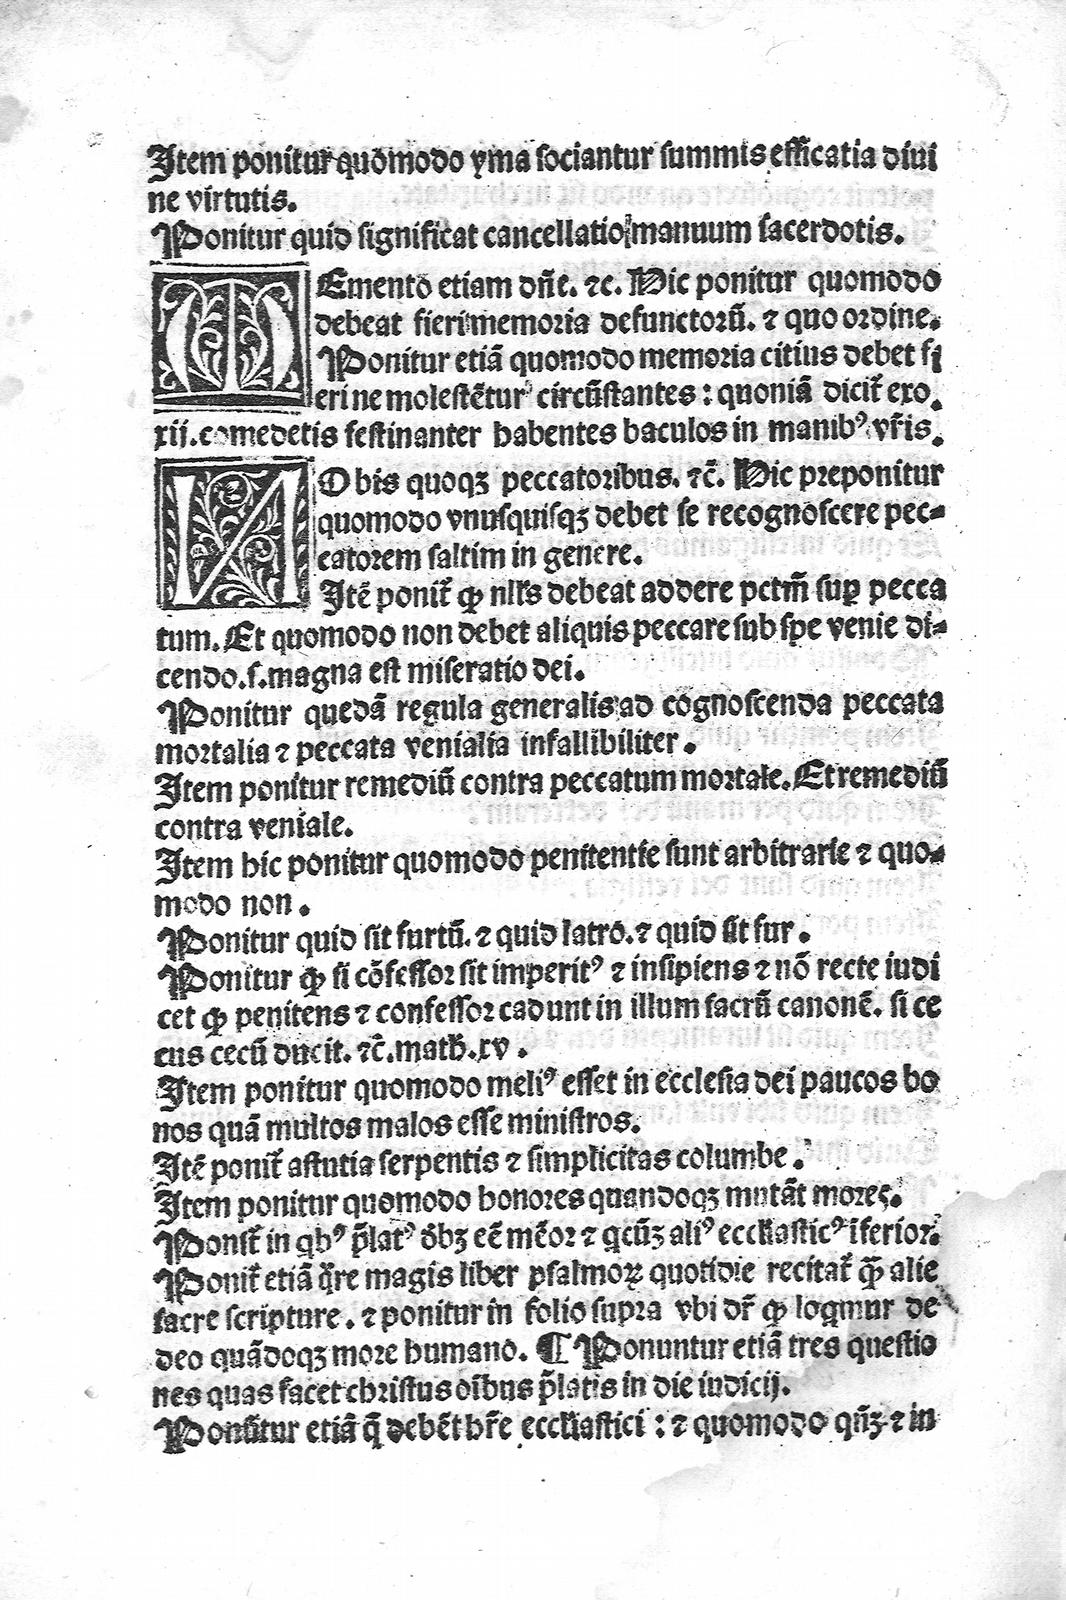 Item ponitur quōmodo yma sociantur summis efficatia diui
ne virtutis.
Ponitur quid significat cancellatio manuum sacerdotis.
MEmento etiam dñe. ⁊c. Hic ponitur quomodo
debeat fieri memoria defunctorū. ⁊ quo ordine.
Ponitur etiā quomodo memoria citius debet fi
eri ne molestētur circūstantes : quoniā dicit̄ exo.
xii. comedetis festinanter habentes baculos in manibꝰ vr̄is.
NObis quoqꝫ peccatoribus. ⁊c̄. Hic preponitur
quomodo vnusquisqꝫ debet se recognoscere pec⸗
catorem saltim in genere.
Itē ponit̄ ꝙ nllꝰs debeat addere pctm̄ suꝑ pecca
tum. Et quomodo non debet aliquis peccare sub spe venie di⸗
cendo. s. magna est miseratio dei.
Ponitur quedā regula generalis ad cognoscenda peccata
mortalia ⁊ peccata venialia infallibiliter.
Item ponitur remediū contra peccatum mortale. Et remediū
contra veniale.
Item hic ponitur quomodo penitentie sunt arbitrarie ⁊ quo⸗
modo non.
Ponitur quid sit furtū. ⁊ quid latro. ⁊ quid sit fur.
Ponitur ꝙ si cōfessor sit imperitꝰ ⁊ insipiens ⁊ nō recte iudi
cet ꝙ penitens ⁊ confessor cadunt in illum sacrū canonē. si ce
cus cecū ducit. ⁊c̄. math̄. xv.
Item ponitur quomodo meliꝰ esset in ecclesia dei paucos bo
nos quā multos malos esse ministros.
Itē ponit̄ astutia serpentis ⁊ simplicitas columbe.
Item ponitur quomodo honores quandoqꝫ mutāt mores.
Ponit̄ in qbꝰ p̄latꝰ dꝫ eē mēor ⁊ qcūꝫ aliꝰ eccliasticꝰ īferior.
Ponit̄ etiā q̄re magis liber psalmoꝝ quotidie recitat̄ ꝙ̄ alie
sacre scripture. ⁊ ponitur in folio supra vbi dr̄ ꝙ loqmur de
deo quādoqꝫ more humano. ¶ Ponuntur etiā tres questio
nes quas facet christus oībus p̄latis in die iudicij.
Ponūtur etiā q̄ debēt hr̄e eccliastici : ⁊ quomodo qn̄ꝫ ⁊ in